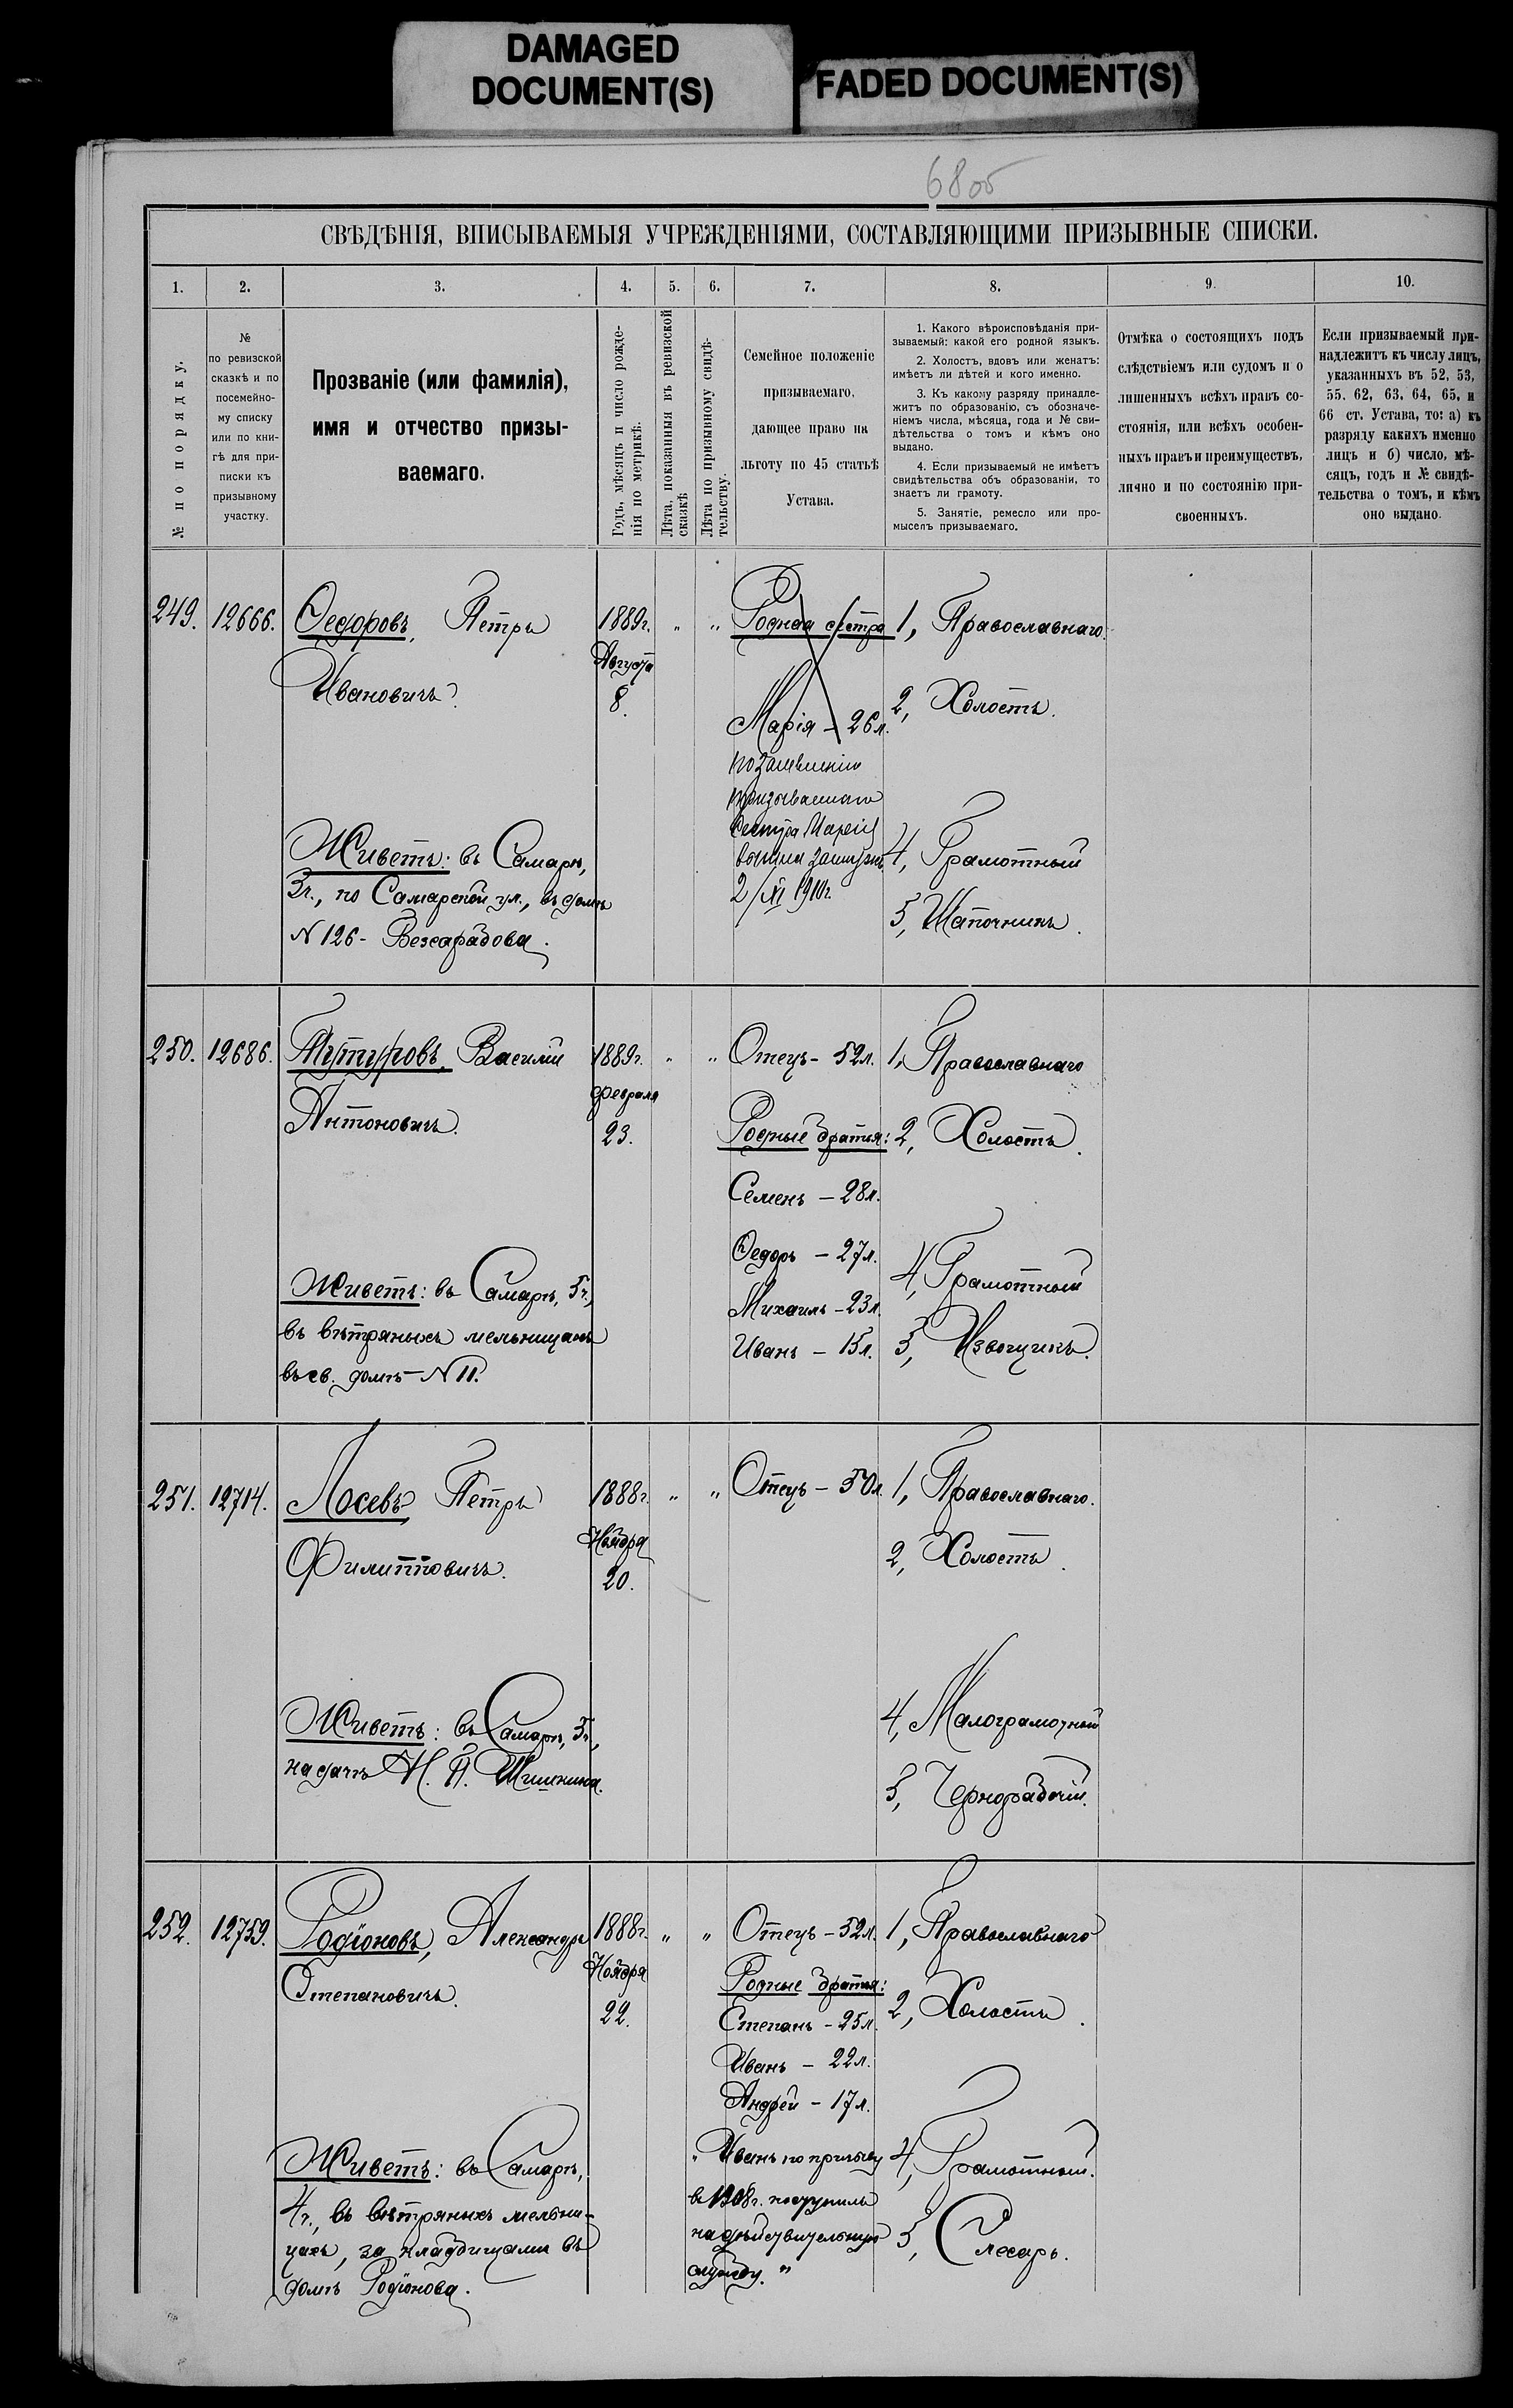 DAMAGED
DOCUMENT(S)
FADED DOCUMENT(S)
68 об
СВѢДѢНІЯ, ВПИСЫВАЕМЫЯ УЧРЕЖДЕНІЯМИ, СОСТАВЛЯЮЩИМИ ПРИЗЫВНЫЕ СПИСКИ.
1.
2.
3.
4.
5.
6.
7.
8.
9.
10.
№ по порядку.
№
по ревизской
сказкѣ и по
посемейно-
му списку
или по кни-
гѣ для при-
писки къ
призывному
участку.
Прозваніе (или фамилія),
имя и отчество призы-
ваемаго.
Годъ, мѣсяцъ и число рожде-
нія по метрикѣ.
Лѣта, показанныя въ ревизской
сказкѣ
Лѣта по призывному свидѣ-
тельству.
Семейное положеніе
призываемаго,
дающее право на
льготу по 45 статьѣ
Устава.
1. Какого вѣроисповѣданія при-
зываемый: какой его родной языкъ.
2. Холостъ, вдовъ или женатъ:
имѣетъ ли дѣтей и кого именно.
3. Къ какому разряду принадле-
житъ по образованію, съ обозначе-
ніемъ числа, мѣсяца, года и № сви-
дѣтельства о томъ и кѣмъ оно
выдано.
4. Если призываемый не имѣетъ
свидѣтельства объ образованіи, то
знаетъ ли грамоту.
5. Занятіе, ремесло или про-
мыселъ призываемаго.
Отмѣка о состоящихъ подъ
слѣдствіемъ или судомъ и о
лишенныхъ всѣхъ правъ со-
стоянія, или всѣхъ особен-
ныхъ правъ и преимуществъ,
лично и по состоянію при-
своенныхъ.
Если призываемый при-
надлежитъ къ числу лицъ,
указанныхъ въ 52, 53,
55, 62, 63, 64, 65, и
66 ст. Устава, то: а) къ
разряду какихъ именно
лицъ и б) число, мѣ-
сяцъ, годъ и № свидѣ-
тельства о томъ, и кѣмъ
оно выдано.
249.
12666.
Ѳедоровъ, Петръ
Ивановичъ.
Живетъ: въ Самарѣ,
3ч., по Самарской ул., въ домѣ
N 126-
1889г.
Августа
8.
"
"
Родная сестра
Марія – 26л.
по заявленію
призываемаго
сестра Марія
вышла замужъ
2/XI 1910г.
1, Православнаго.
2, Холостъ.
4, Грамотный
5, Шапочникъ.
250.
12686.
Тутуровъ, Василій
Антоновичъ.
Живетъ: въ Самарѣ, 5ч.,
въ вѣтряныхъ мельницахъ
въ св. домѣ – N 11.
1889г.
Февраля
23.
"
"
Отецъ – 52л.
Родные братья:
Семенъ – 28л.
Ѳедоръ – 27л.
Михаилъ – 23л.
Иванъ – 15л.
1, Православнаго
2, Холостъ.
4, Грамотный
5, Извощикъ.
251.
12714.
Лосевъ, Петръ
Филипповичъ.
Живетъ: въ Самарѣ, 5ч.,
на дачѣ Н. П. Шишкина.
1888г.
Ноября
20.
"
"
Отецъ – 50л.
1, Православнаго.
2, Холостъ.
4, Малограмотный
5, Чернорабочій.
252.
12759.
Родіоновъ, Александръ
Степановичъ.
Живетъ: въ Самарѣ,
4ч., въ вѣтряныхъ мельни-
цахъ, за кладбищами въ
домѣ Родіонова.
1888г.
Ноября
22.
"
"
Отецъ – 52л.
Родные братья:
Степанъ – 25л.
Иванъ – 22л.
Андрей – 17л.
"Иванъ по призыву
въ 1908г. поступилъ
на дѣйствительную
службу."
1, Православнаго
2, Холостъ.
4, Грамотный.
5, Слесарь.